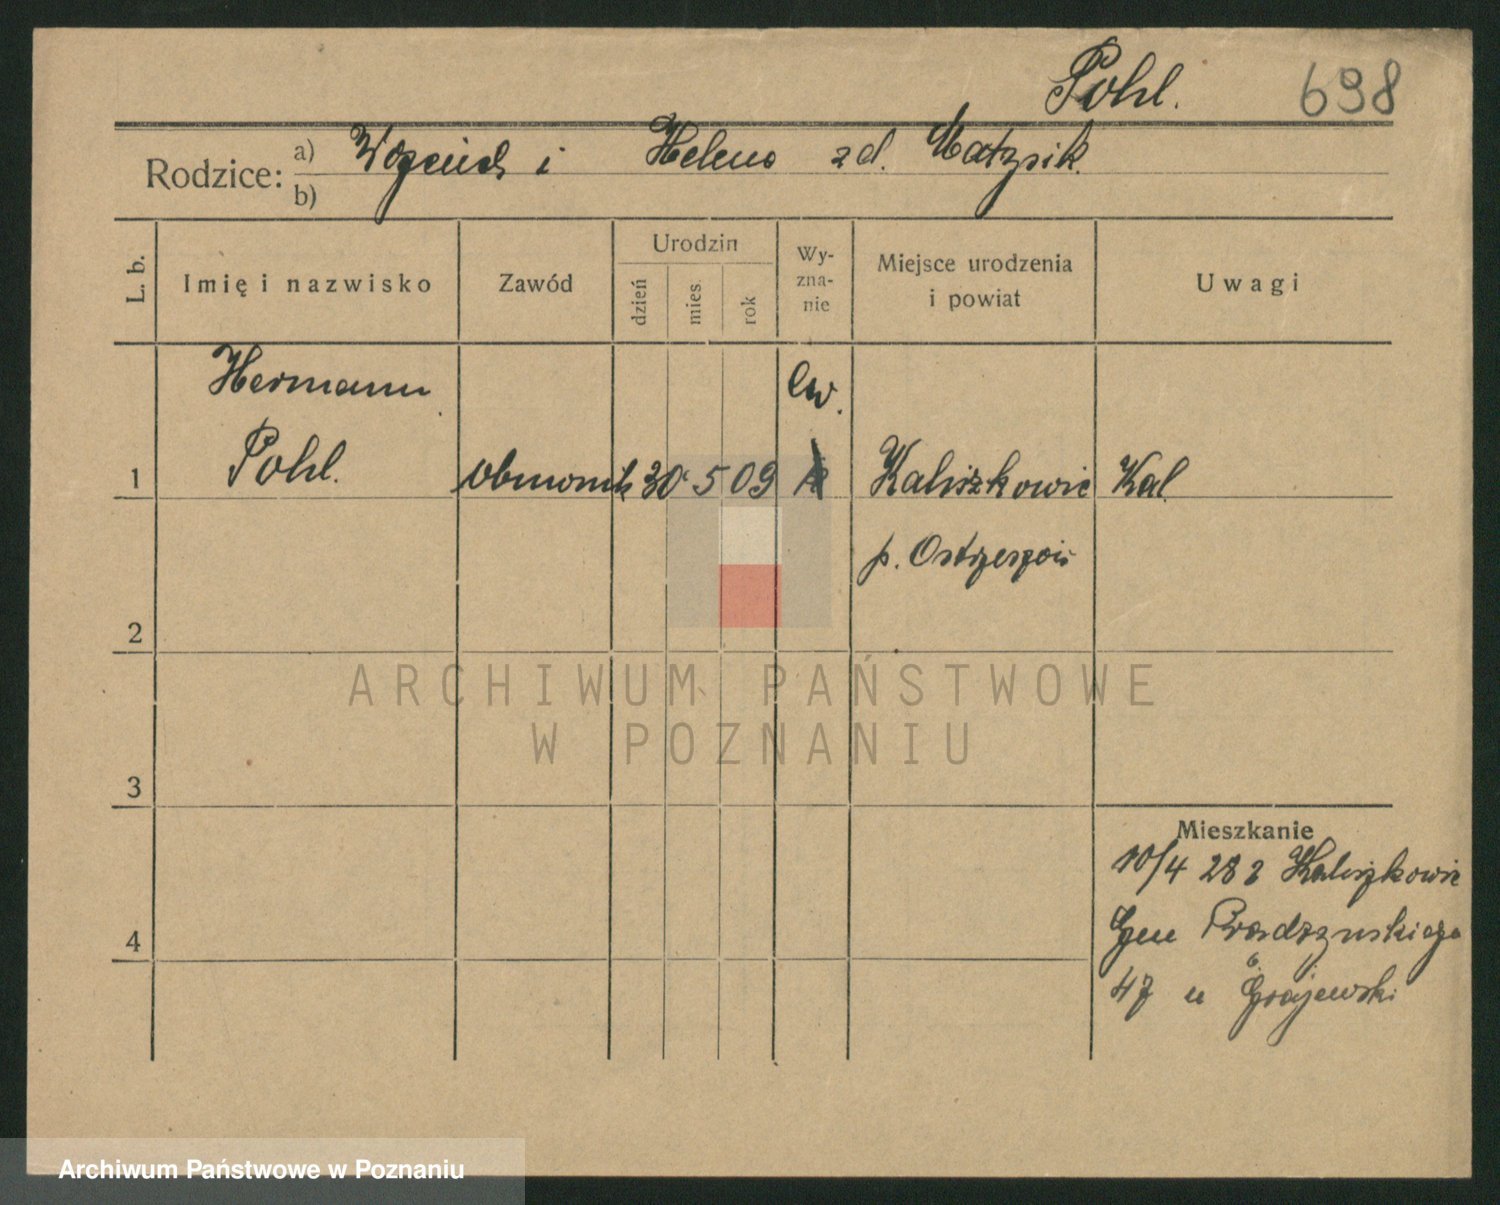 Pohl. 698
Rodzice: a) Wojciech i Helena zd. Matysik.
b)
L. b. Imię i nazwisko Zawód Urodzin dzień mies. rok Wy-zna-nie Miejsce urodzenia i powiat Uwagi
Hermann ew.
1 Pohl. 30 5 09 Kaliszkowic Kal.
p. Ostrzeszów
2
3
Mieszkanie
10/4 28 z Kaliszkowic
4 Gen Prądzyńskiego
47 u Grajewski
ARCHIWUM PAŃSTWOWE
W POZNANIU
Archiwum Państwowe w Poznaniu